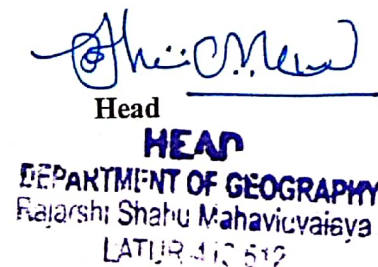 Head
HEAD
DEPARTMENT OF GEOGRAPHY
Rajarshi Shahu Mahavidyalaya
LATUR-413 512